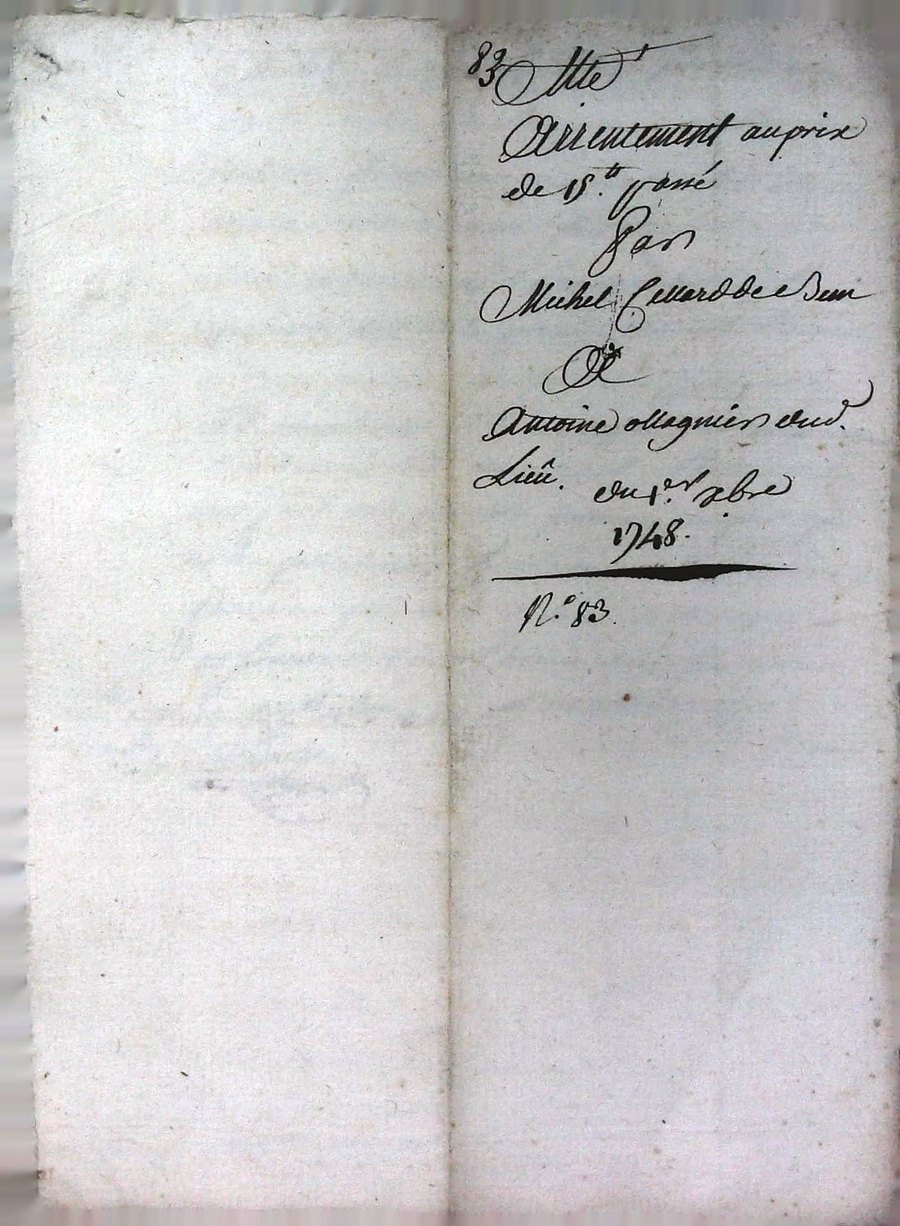 83
Arrentement au prix
de 15.tt passé
Par
Michel Cellard de Bem
A
Antoine Magnier dud.
Lieû.
du 1.er xbre
1748.
N.° 83.